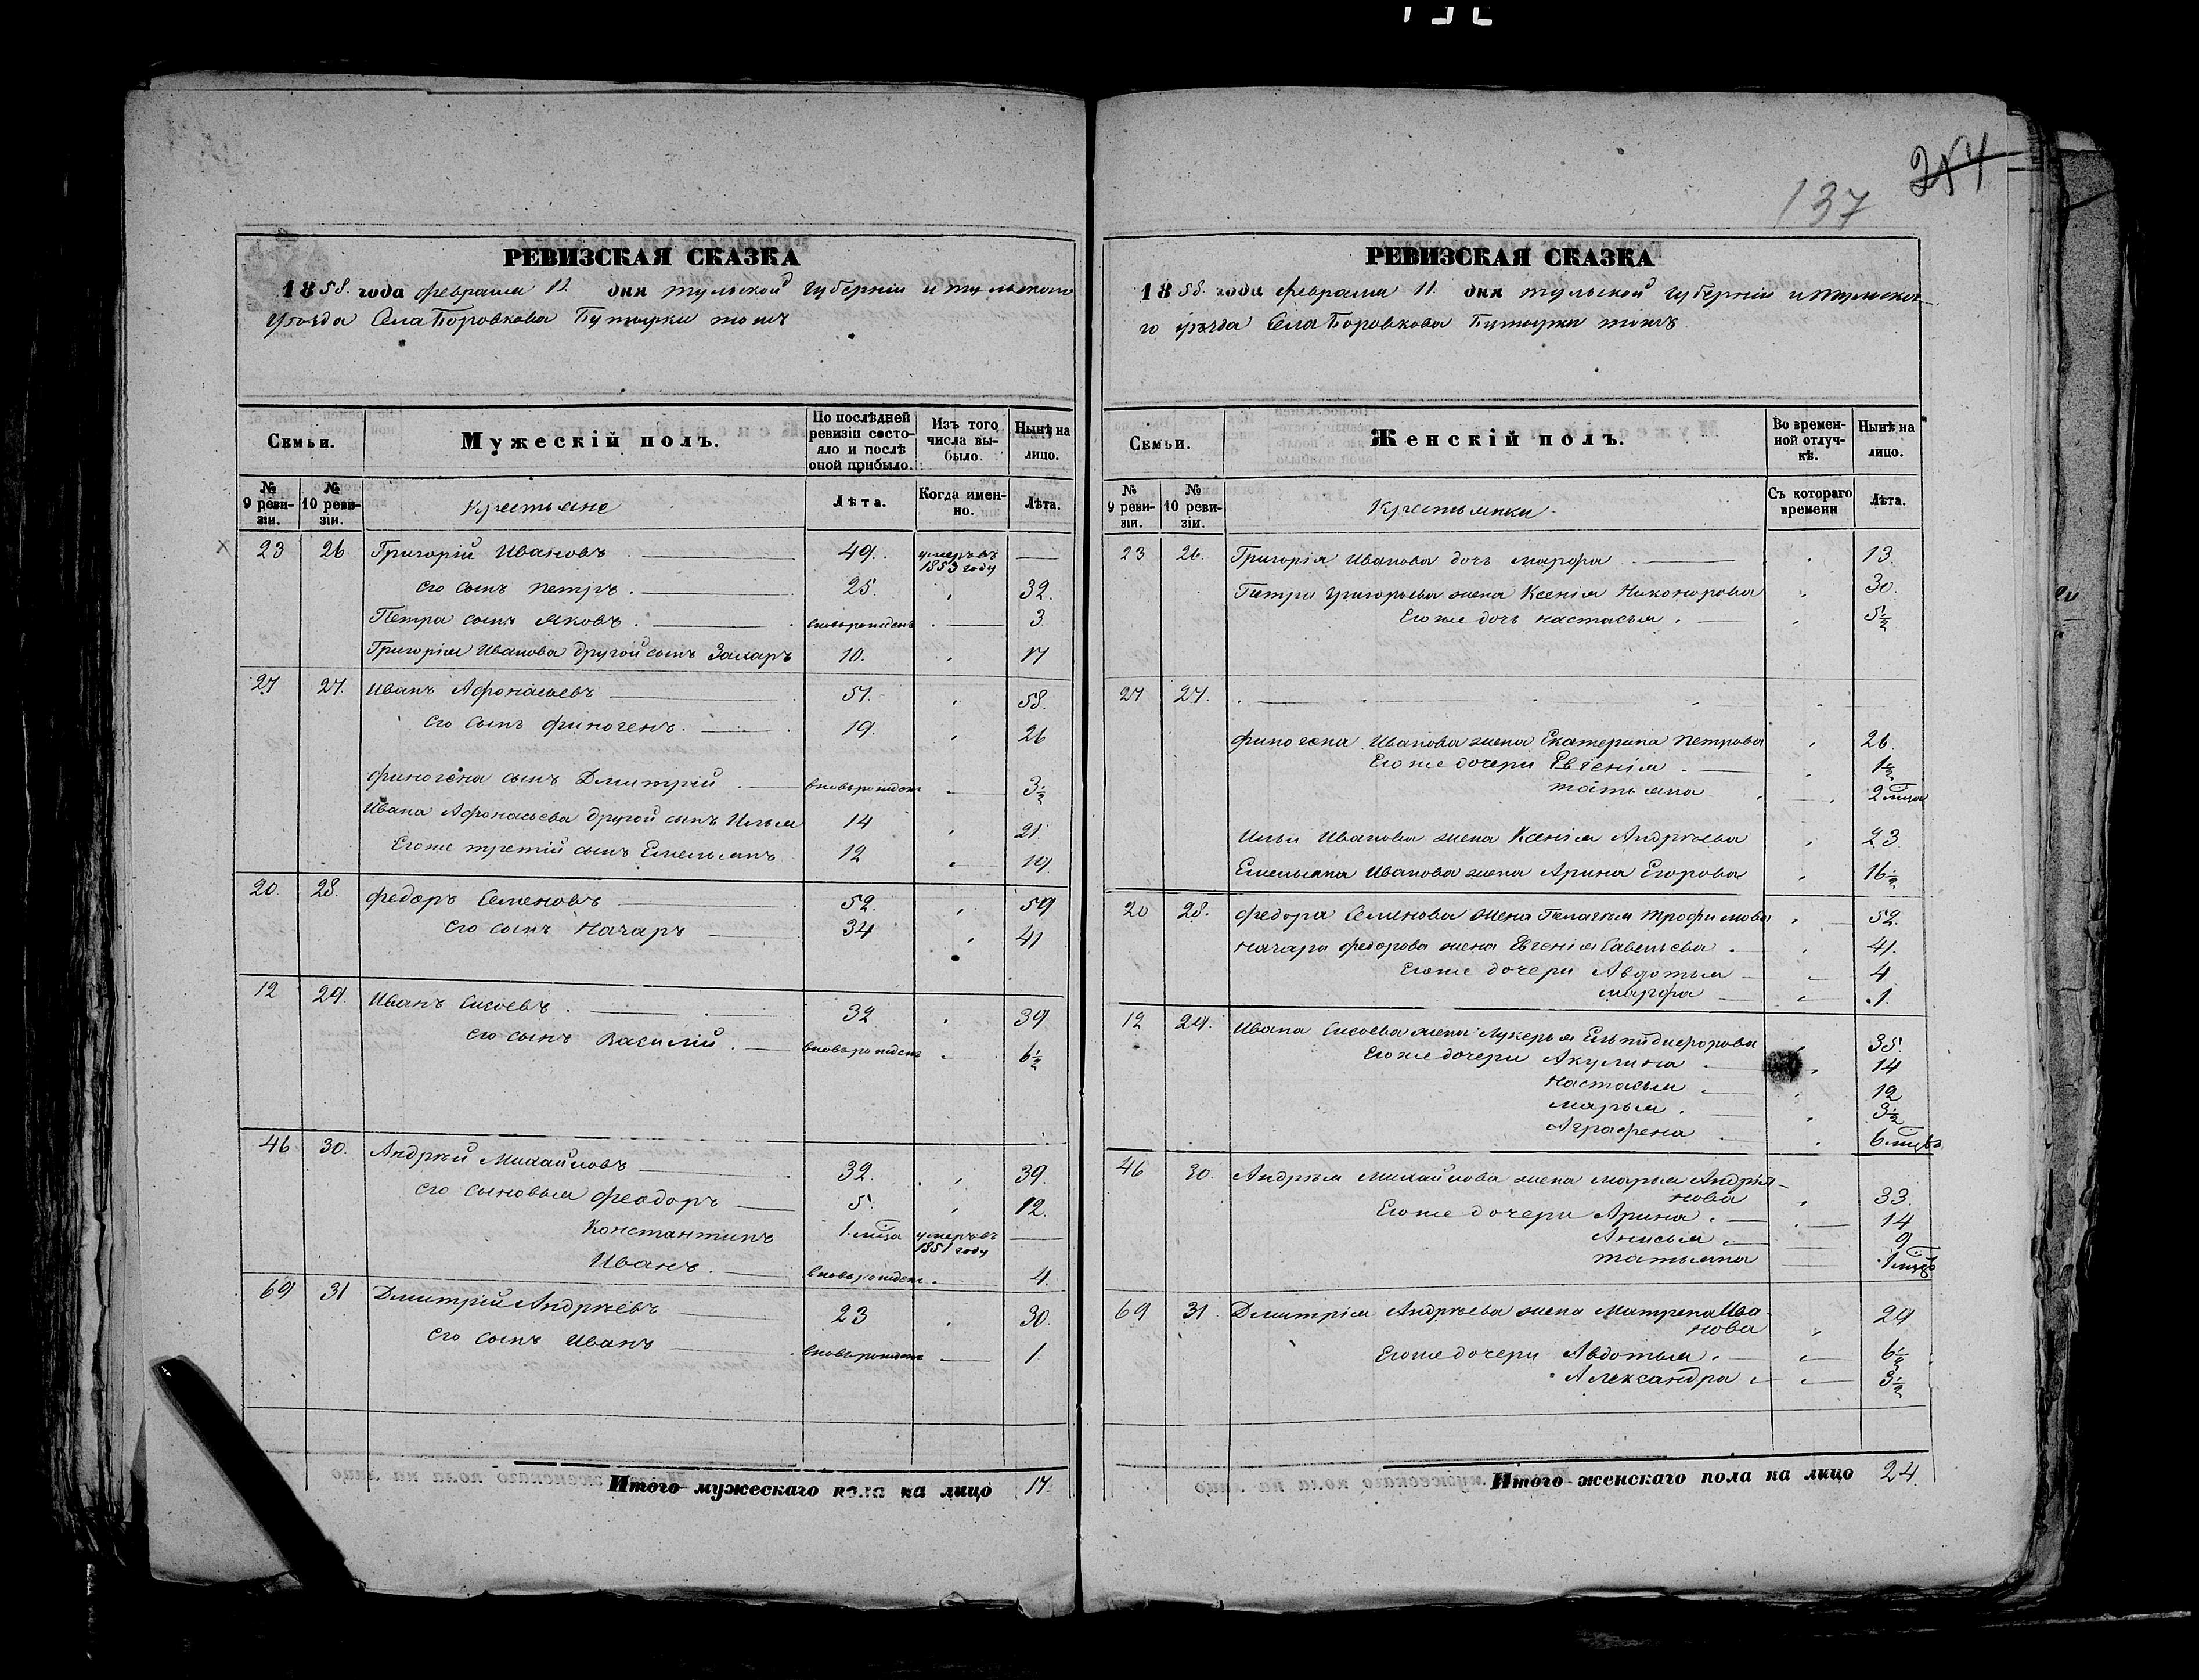 137
254
РЕВИЗСКАЯ СКАЗКА
1858 года февраля 11 дня тульской губерніи и тульскаго
уѣзда Села Боровкова Бутырки тожъ
Семьи.
Мужескій полъ.
По послѣдней ревизіи состояло и послѣ оной прибыло.
Изъ того числа выбыло.
Нынѣ на лицо.
№ 9 ревизіи.
№ 10 ревизіи.
Крестьяне
Лѣта.
Когда именно.
Лѣта.
23 26 Григорій Ивановъ 49. умеръ въ 1853 году —
его сынъ Петръ. 25. 32.
Петра сынъ Яковъ. вновьрожденъ 3
Григорія Иванова другой сынъ Захаръ 10. 17
27 27. Иванъ Афонасьевъ 51. 58.
его сынъ финогенъ. 19. 26
финогена сынъ Дмитрій вновьрожденъ 3½
Ивана Афонасьева другой сынъ Илья 14 21
Егоже третій сынъ Емельянъ 12 19.
20. 28. федоръ Семеновъ 52. 59
его сынъ Назаръ 34 41
12 29. Иванъ Сысоевъ. 32 39
его сынъ Василій. вновьрожденъ 6½
46 30. Андрѣй Михайловъ 32. 39.
его сыновья феодоръ 5. 12.
Константинъ 1. мѣца умеръ въ 1851 году —
Иванъ. вновьрожденъ 4.
69 31 Дмитрій Андрѣевъ 23 30.
его сынъ Иванъ вновьрожденъ 1.
Итого мужескаго пола на лицо 17.
РЕВИЗСКАЯ СКАЗКА
1858. года февраля 11. дня тульской губерніи и тульска-
го уѣзда Села Боровкова Бутырки тожъ.
Семьи.
Женскій полъ.
Во временной отлучкѣ.
Нынѣ на лицо.
№ 9 ревизіи.
№ 10 ревизіи.
Крестьянки
Съ котораго времени
Лѣта.
23 26. Григорія Иванова дочь марфа 13.
Петра григорьева жена Ксенія Никонорова 30.
Егоже дочь настасья. 5½
27 27.
финогена Иванова жена Екатерина петрова 26.
Егоже дочери Евгенія. 1½
татьяна 2 мѣца
Ильи Иванова жена Ксенія Андрѣева 23.
Емельяна Иванова жена Арина Егорова 16½
20 28. федора Семенова жена Пелагѣя трофимова 52.
назара федорова жена Евгенія Савельева. 41.
Егоже дочери Авдотья 4
марфа 1.
12 29. Ивана Сысоева жена Лукерья Ельпидифорова 35.
Егоже дочери Акулина 14
настасья 12
марья. 3½
Аграфена 6 мѣцвъ
46 30. Андрѣя Михайлова жена марья Андрія-
нова 33.
Егоже дочери Арина. 14
Анисья 9
татьяна 1 мѣцъ
69 31. Дмитрія Андрѣева жена Матрена Ива-
нова 29
Егоже дочери Авдотья. 6½
Александра 3½
Итого женскаго пола на лицо 24.